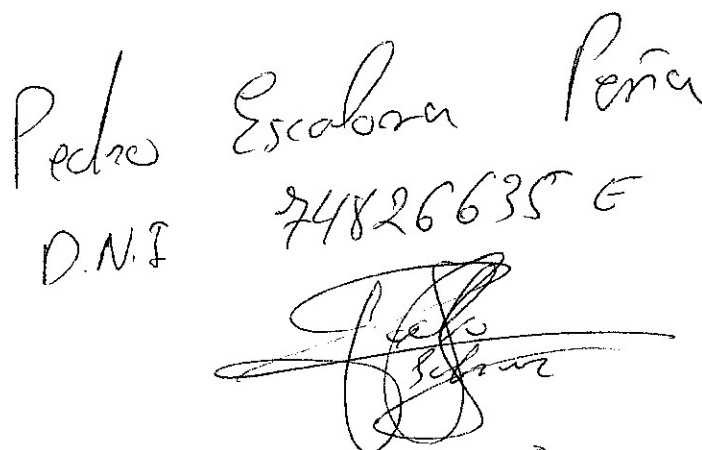 Pedro Escalona Peña
D.N.I 74826635 E
Pedro